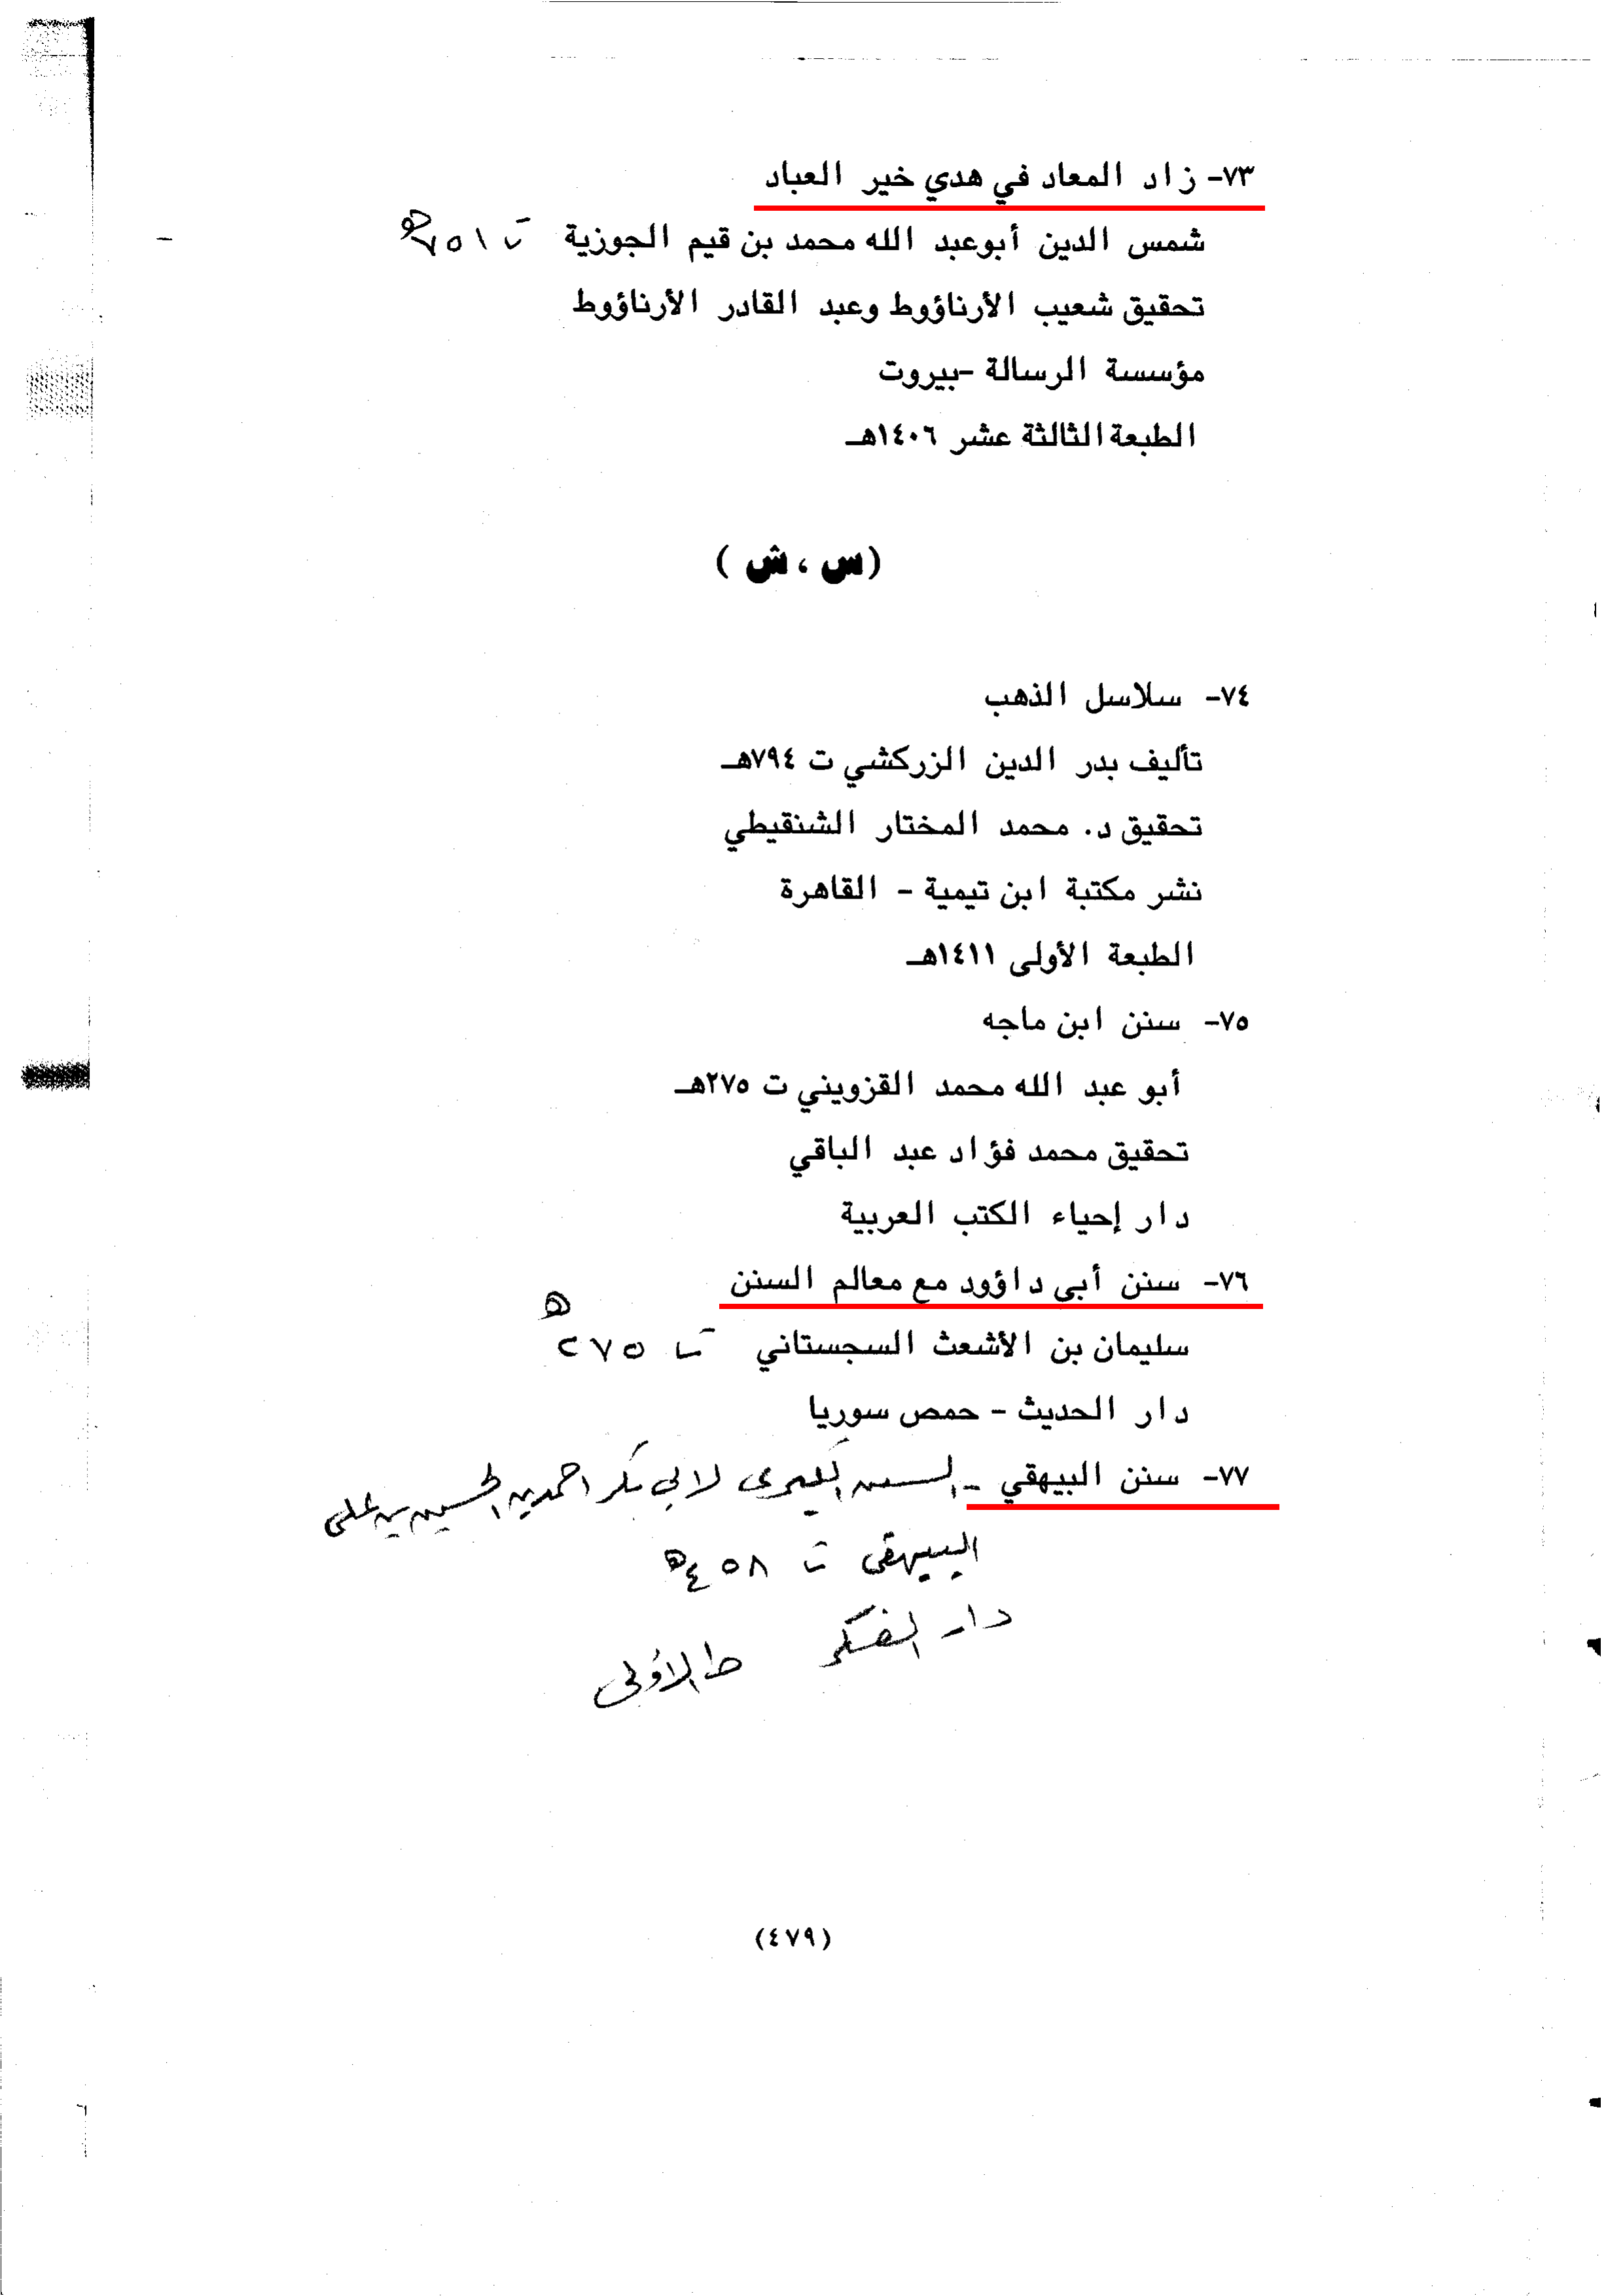 ٧٣- زاد المعاد في هدي خير العباد
شمس الدين أبوعبد الله محمد بن قيم الجوزية ت ٧٥١هـ
تحقيق شعيب الأرناؤوط وعبد القادر الأرناؤوط
مؤسسة الرسالة -بيروت
الطبعة الثالثة عشر ١٤٠٦هـ
(س ، ش )
٧٤- سلاسل الذهب
تأليف بدر الدين الزركشي ت ٧٩٤هـ
تحقيق د. محمد المختار الشنقيطي
نشر مكتبة ابن تيمية - القاهرة
الطبعة الأولى ١٤١١هـ
٧٥- سنن ابن ماجه
أبو عبد الله محمد القزويني ت ٢٧٥هـ
تحقيق محمد فؤاد عبد الباقي
دار إحياء الكتب العربية
٧٦- سنن أبى داؤود مع معالم السنن
سليمان بن الأشعث السجستاني ت ٢٧٥ هـ
دار الحديث - حمص سوريا
٧٧- سنن البيهقي - السنن الكبرى لابي بكر احمد بن الحسين بن على
البيهقى ت ٤٥٨ هـ
دار الفكر ط الأولى
(٤٧٩)